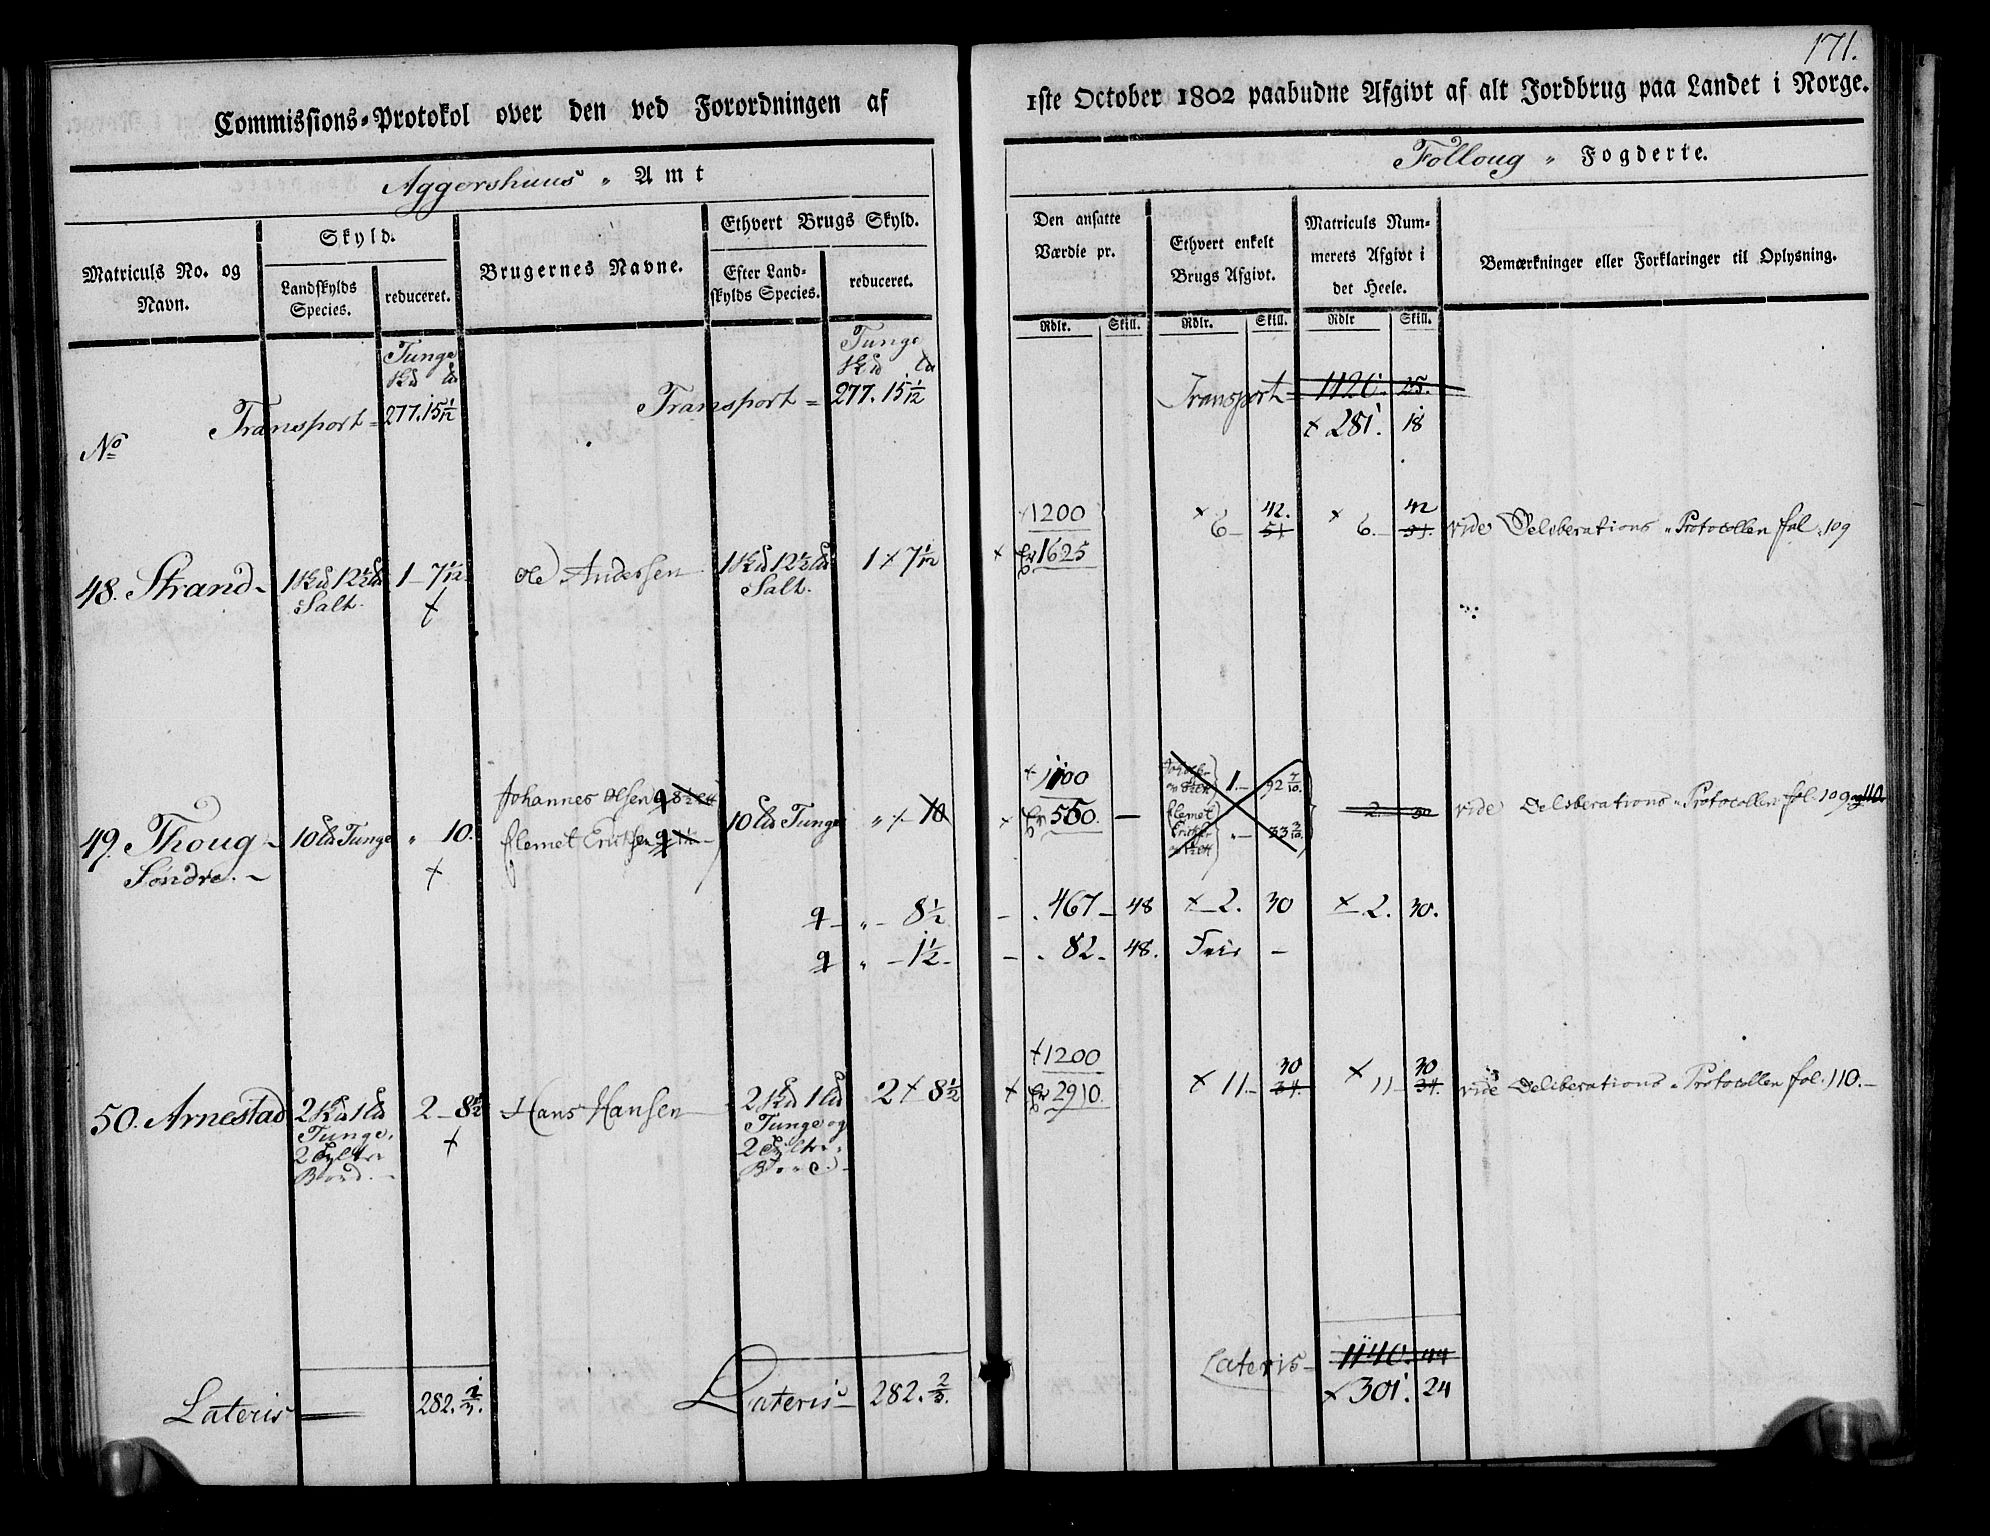 171.
Commissions-Protokol over den ved Forordningen af
1ste October 1802 paabudne Afgivt af alt Jordbrug paa Landet i Norge.
Aggershuus " Amt
Folloug " Fogderie.
Matriculs No. og Navn.
Skyld.
Landskylds Species.
reduceret.
Brugernes Navne.
Ethvert Brugs Skyld.
Efter Landskylds Species.
reduceret.
Den ansatte Værdie pr.
Ethvert enkelt Brugs Afgivt.
Matriculs Nummerets Afgivt i det Heele.
Bemærkninger eller Forklaringer til Oplysning.
Rdlr. Skill. Rdlr. Skill. Rdlr Skill.
Tunge
Tunge
No
Transport = 277.15 1/12
Transport = 277.15 1/12
Transport 1120. 25.
+ 281. 18
1200 + 6 42. + 6. 42
48. Strand 1 12½ Salt. 1 - 7 1/12 Ole Andersen 1 12½ Salt. 1 + 7 1/12 + 1625 51 vide Deliberations-Protocollen fol. 109
+ 1100
49. Thoug Søndre. 10 Tunge " 10. Johannes Olsen 8½
Clemet Ericksen 1½ 10 Tunge " 10 550. — 1.- 92 7/10.
" - 33 3/10. 2. 30 vide Deliberations-Protocollen fol. 109 og 110.
" - 8½ - 467 - 48 + 2. 30 + 2. 30.
" - 1½ - 82 - 48. Frie -
+ 1200 30 30
50. Arnestad 2 1 Tunge, 2 Bord. 2 - 8½ Hans Hansen 2 1 Tunge og 2 2 + 8½ + 2910. + 11 - 34. + 11 - 34. vide Deliberations-Protocollen fol. 110.-
Lateris 282. 2/3.
Lateris 282. 2/3.
Lateris 1140. 44
+ 301. 24